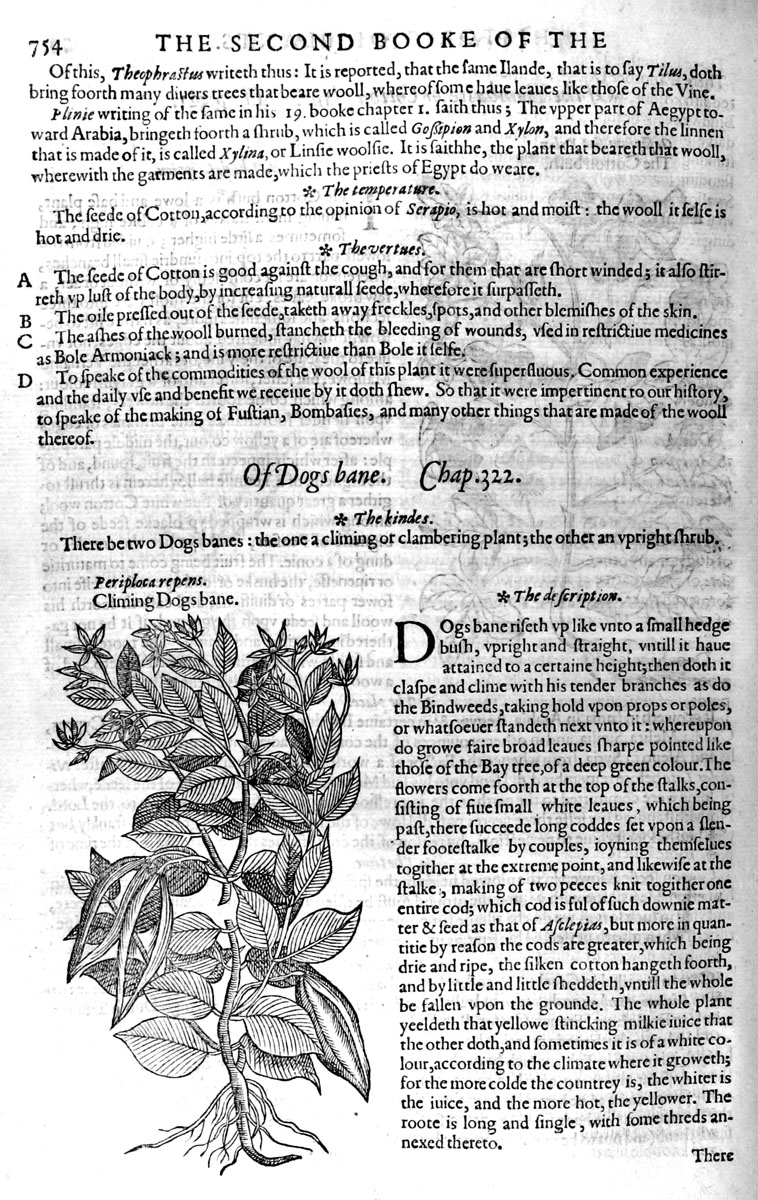 754 THE SECOND BOOKE OF THE
Of this, Theophraſtus writeth thus: It is reported, that the ſame Ilande, that is to ſay Tilus, doth
bring foorth many diuers trees that beare wooll, whereof ſome haue leaues like thoſe of the Vine.
Plinie writing of the ſame in his 19. booke chapter 1. ſaith thus; The vpper part of Aegypt to-
ward Arabia, bringeth foorth a ſhrub, which is called Goſſipion and Xylon, and therefore the linnen
that is made of it, is called Xylina, or Linſie woolſie. It is ſaith he, the plant that beareth that wooll,
wherewith the garments are made, which the prieſts of Egypt do weare.
✻ The temperature.
The ſeede of Cotton, according to the opinion of Serapio, is hot and moiſt: the wooll it ſelfe is
hot and drie.
✻ The vertues.
A The ſeede of Cotton is good againſt the cough, and for them that are ſhort winded; it alſo ſtir-
reth vp luſt of the body, by increaſing naturall ſeede, wherefore it ſurpaſſeth.
B The oile preſſed out of the ſeede, taketh away freckles, ſpots, and other blemiſhes of the skin.
C The aſhes of the wooll burned, ſtancheth the bleeding of wounds, vſed in reſtrictiue medicines
as Bole Armoniack; and is more reſtrictiue than Bole it ſelfe.
D To ſpeake of the commodities of the wool of this plant it were ſuperfluous. Common experience
and the daily vſe and benefit we receiue by it doth ſhew. So that it were impertinent to our hiſtory,
to ſpeake of the making of Fuſtian, Bombaſies, and many other things that are made of the wooll
thereof.
Of Dogs bane. Chap. 322.
✻ The kindes.
There be two Dogs banes: the one a climing or clambering plant; the other an vpright ſhrub.
Periploca repens.
Climing Dogs bane.
✻ The deſcription.
DOgs bane riſeth vp like vnto a ſmall hedge
buſh, vpright and ſtraight, vntill it haue
attained to a certaine height; then doth it
claſpe and clime with his tender branches as do
the Bindweeds, taking hold vpon props or poles,
or whatſoeuer ſtandeth next vnto it: whereupon
do growe faire broad leaues ſharpe pointed like
thoſe of the Bay tree, of a deep green colour. The
flowers come foorth at the top of the ſtalks, con-
ſiſting of fiue ſmall white leaues, which being
paſt, there ſucceede long coddes ſet vpon a ſlen-
der footeſtalke by couples, ioyning themſelues
togither at the extreme point, and likewiſe at the
ſtalke, making of two peeces knit togither one
entire cod; which cod is ful of ſuch downie mat-
ter & ſeed as that of Aſclepias, but more in quan-
titie by reaſon the cods are greater, which being
drie and ripe, the ſilken cotton hangeth foorth,
and by little and little ſheddeth, vntill the whole
be fallen vpon the grounde. The whole plant
yeeldeth that yellowe ſtincking milkie iuice that
the other doth, and ſometimes it is of a white co-
lour, according to the climate where it groweth;
for the more colde the countrey is, the whiter is
the iuice, and the more hot, the yellower. The
roote is long and ſingle, with ſome threds an-
nexed thereto.
There